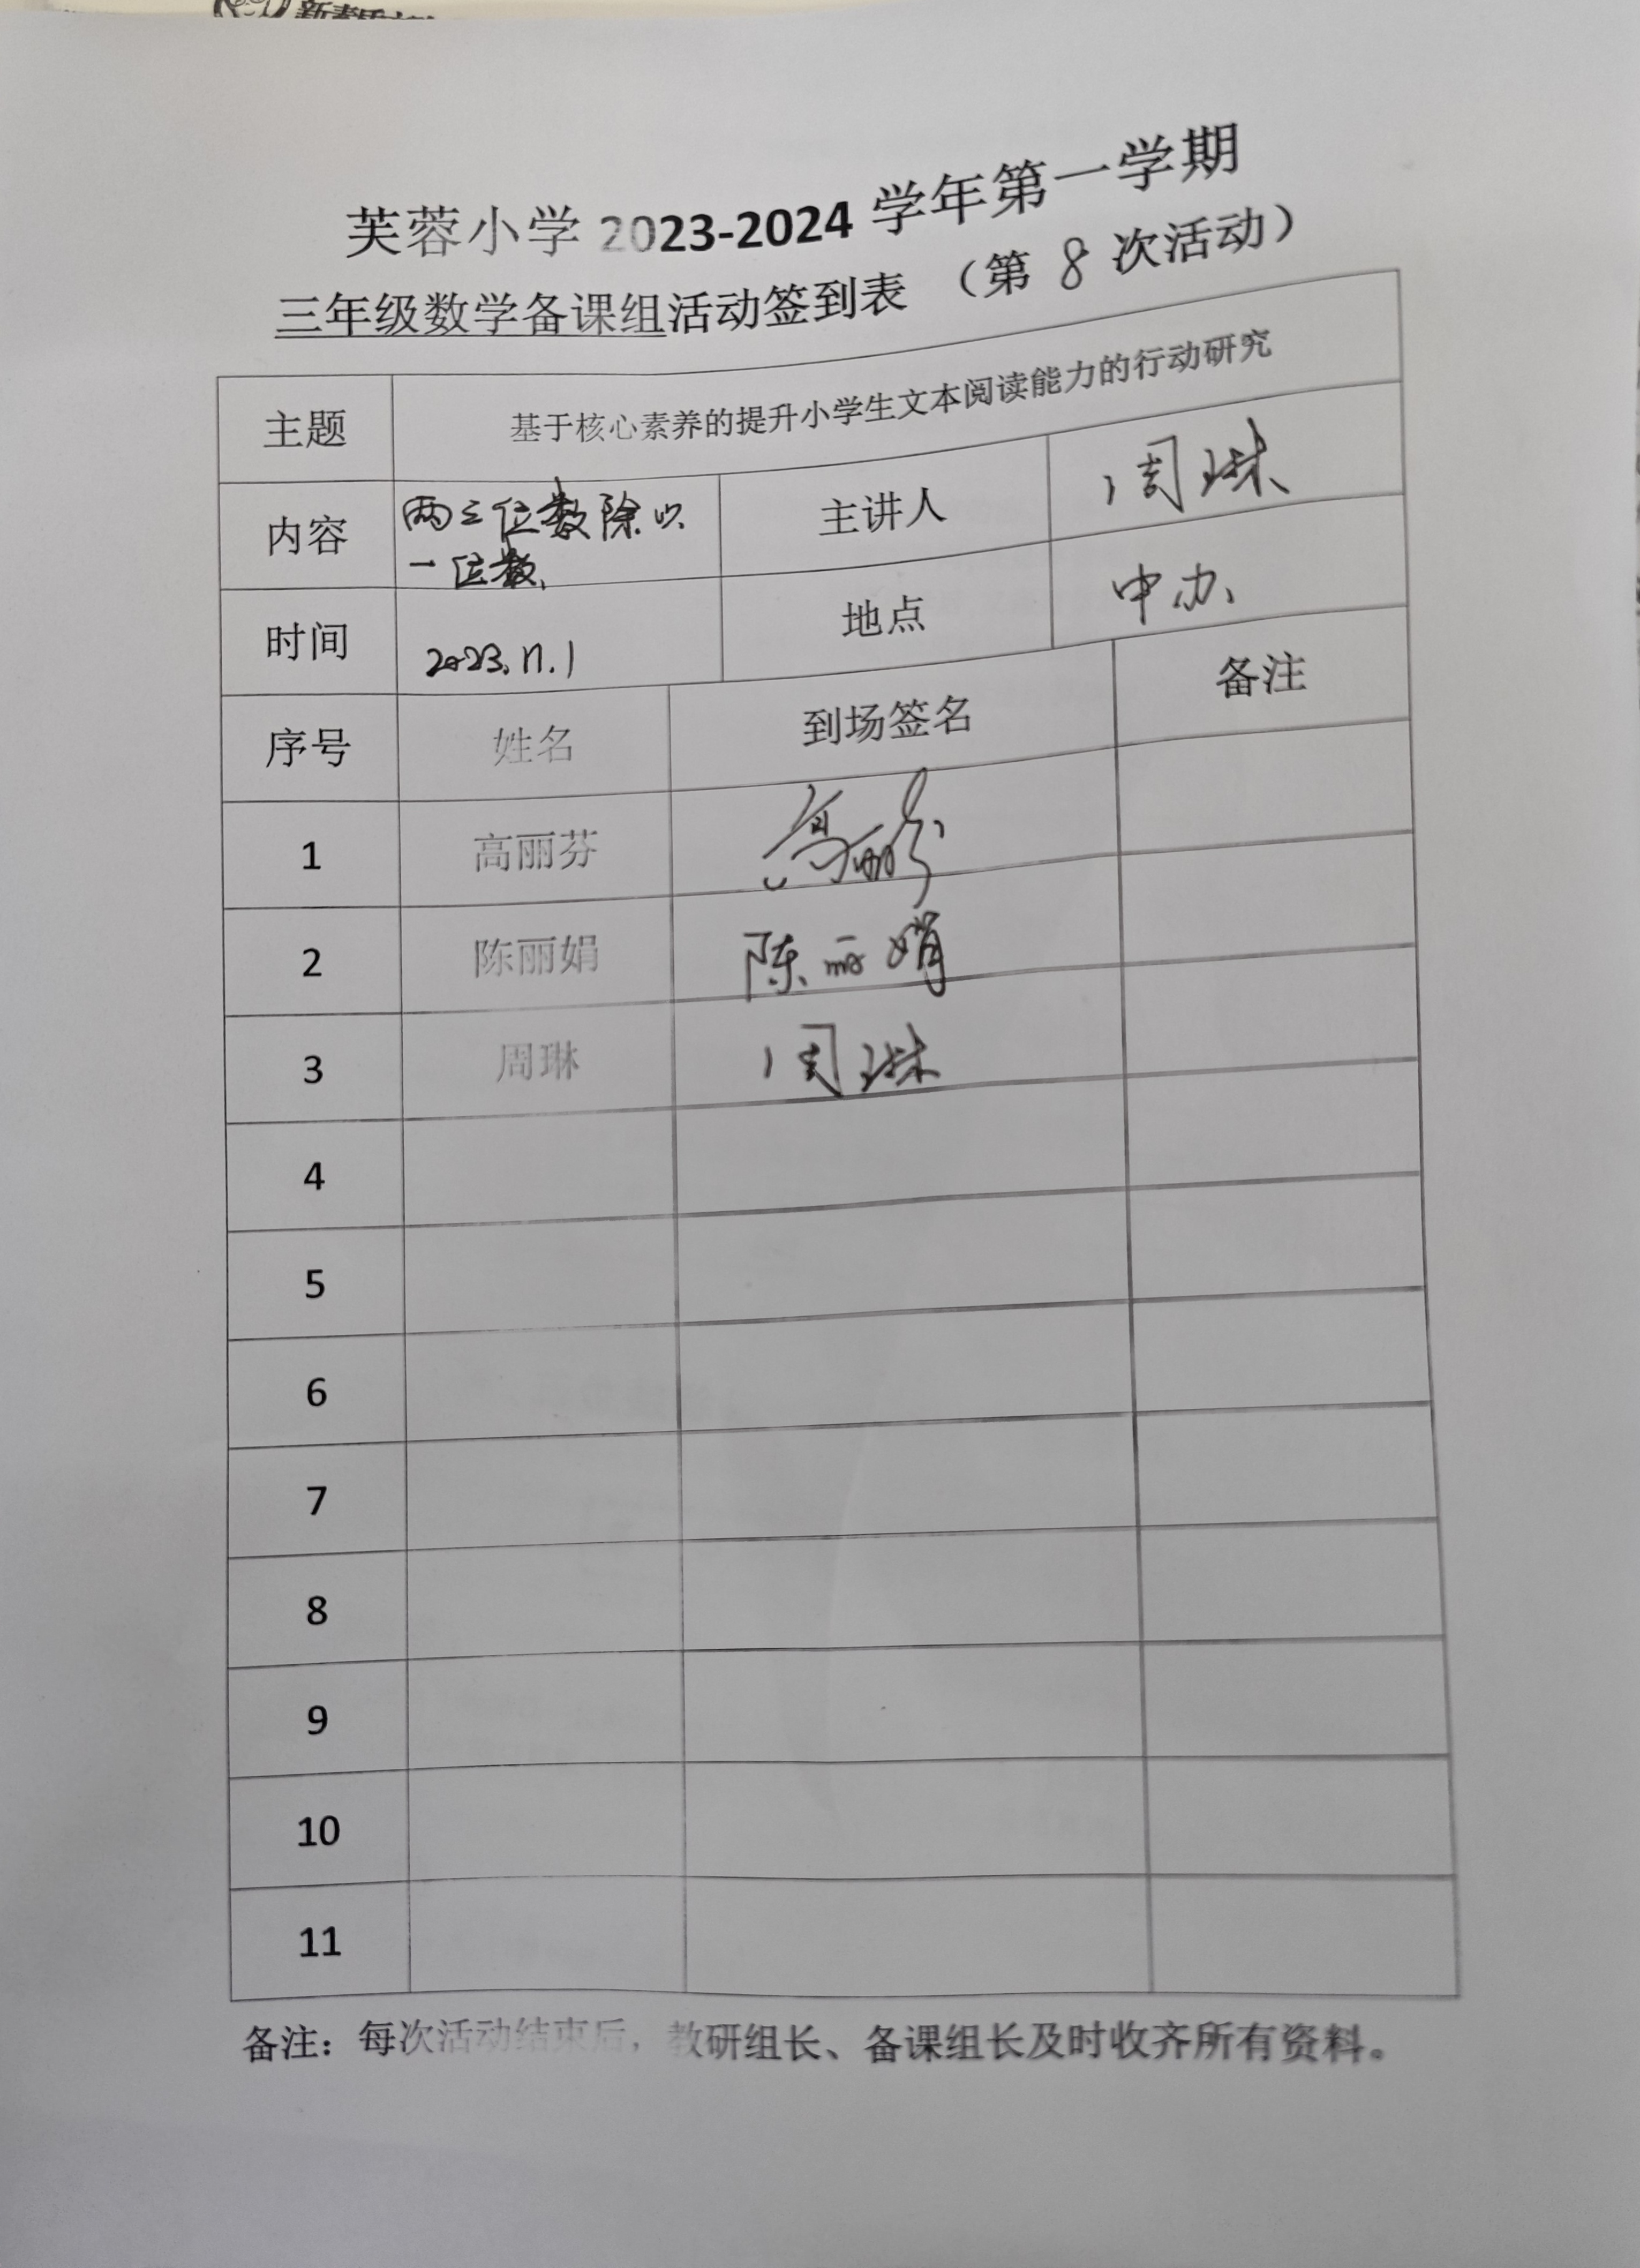 芙蓉小学 2023-2024 学年第一学期
三年级数学备课组活动签到表 （第 8 次活动）
主题 基于核心素养的提升小学生文本阅读能力的行动研究
内容 两三位数除以一位数 主讲人 周琳
时间 2023.11.1 地点 中办
序号 姓名 到场签名 备注
1 高丽芬 高丽芬
2 陈丽娟 陈丽娟
3 周琳 周琳
4
5
6
7
8
9
10
11
备注：每次活动结束后，教研组长、备课组长及时收齐所有资料。